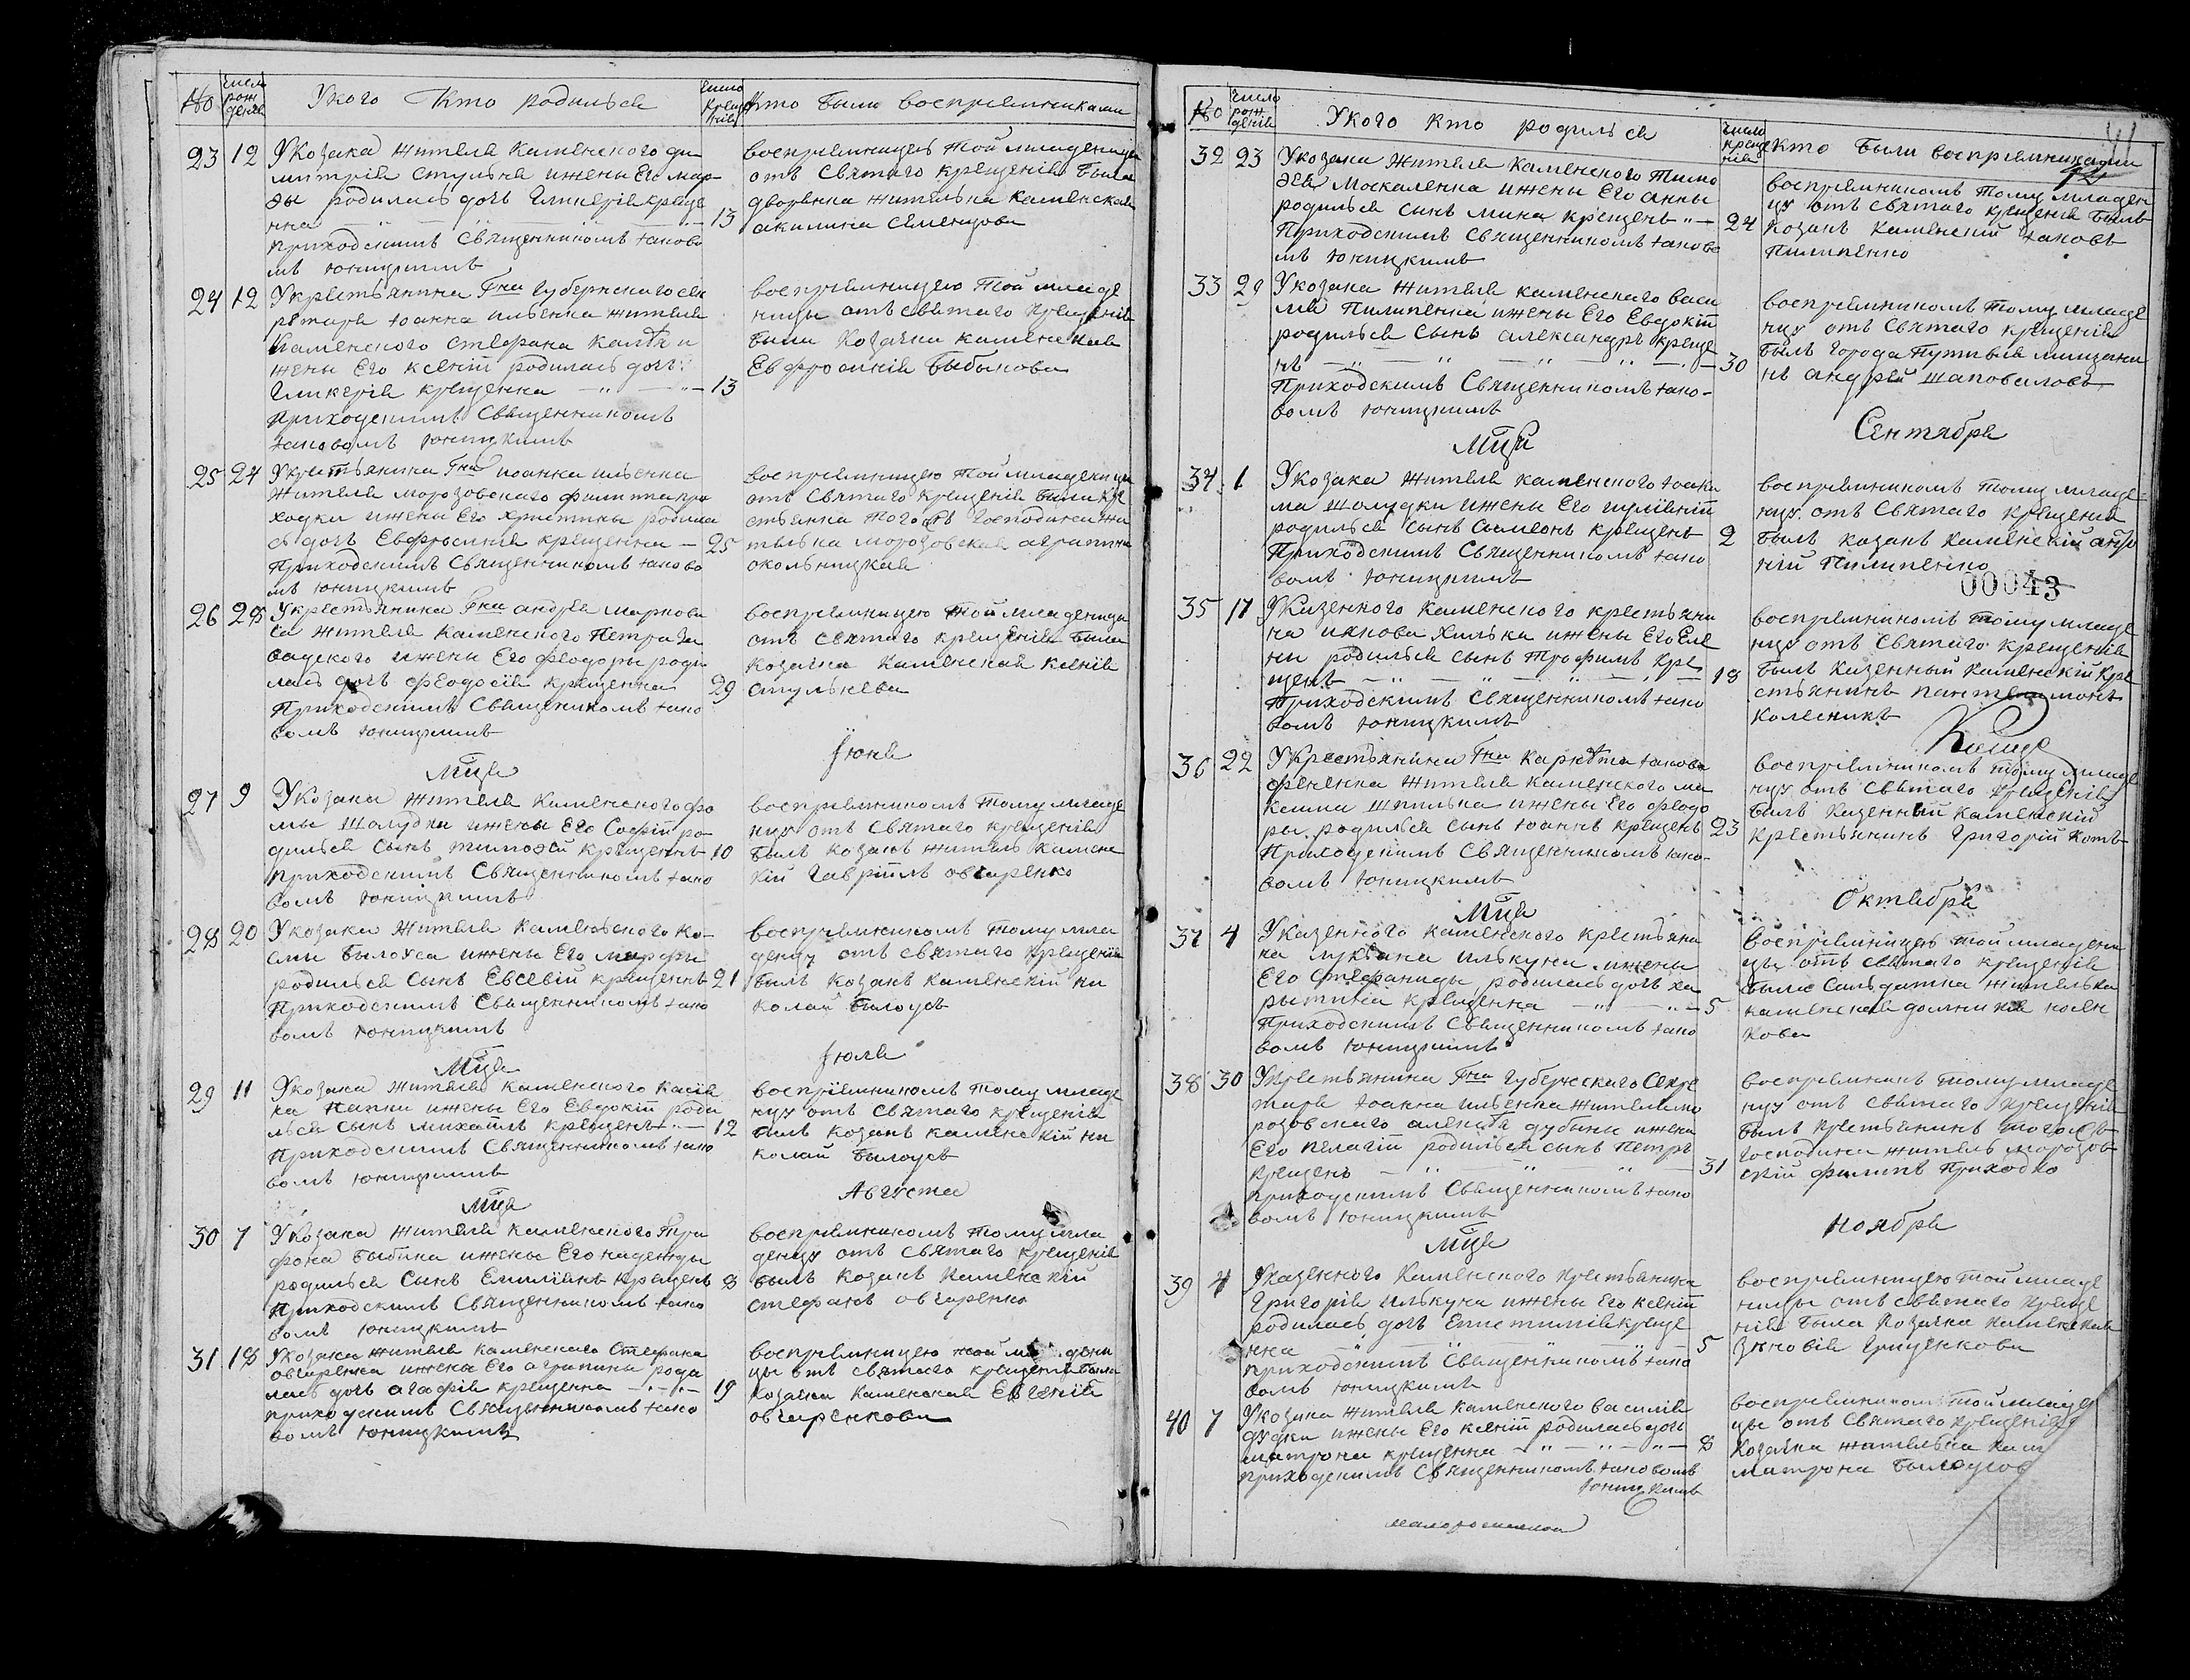 №
число рождения
У кого Кто родился
число крещения
Кто были восприемниками
23 12 У Козака жителя Каменского ди
митрия Стульня и жены Его мар
родилась дочь Гликерия креще
нна 13
приходскимъ Священникомъ Iаково
мъ Юницкимъ
восприемницею той младеницы
отъ Святаго крещения была
дворянка жителька Каменская
акилина Семенцова
24 12 У крестьянина Гна Губернского сек
ретаря Iоанна ильенка жителя
Каменского Стефана и
жены Его Ксении родилась дочь
Гликерия крещенна 13
приходскимъ Священникомъ
Iаковомъ Юницкимъ
восприемницею той младе
ницы отъ святаго крещения
была Козачка каменская
Евфросиния Быбыкова
25 24 У крестьянина Гна иоанна ильенка
жителя морозовского филиппа при
ходки и жены Его христины родила
сь дочь Евфросиния крещенна 25
Приходскимъ Священникомъ Iаково
мъ Юницкимъ
восприемницею той младеницы
отъ Святаго крещения была кре
стьянка того жъ Господина жи
телька морозовская агрипина
окольницкая
26 28 У крестьянина Гна андрея маркови
ча жителя Каменского Петра
и жены Его феодоры роди
лась дочь феодосия крещенна 29
Приходскимъ Священникомъ Iако
вомъ Юницкимъ
восприемницею той младеницы
отъ святаго крещения была
козачка Каменская Ксения
стульнева
Мца Iюня
27 9 У Козака жителя Каменского фо
мы Шолудки и жены Его Софии ро
дился сынъ тимофей крещенъ 10
приходскимъ Священникомъ Iако
вомъ Юницкимъ
восприемникомъ тому младе
нцу отъ Святаго крещения
былъ козакъ житель Каменс
кий Гавриилъ овчаренко
28 20 У козака жителя Каменского Ко
смы Былоуса и жены Его марфы
родился сынъ Евсевий крещенъ 21
Приходскимъ Священникомъ Iако
вомъ Юницкимъ
восприемникомъ тому мла
денцу отъ святаго крещения
былъ козакъ каменский ни
колай Былоусъ
Мца Iюля
29 11 У козака жителя каменского Касия
на и жены Его Евдокии роди
лся сынъ михаилъ крещенъ 12
Приходскимъ Священникомъ Iако
вомъ Юницкимъ
восприемникомъ тому младе
нцу отъ Святаго крещения
былъ козакъ каменский ни
колай Былоусъ
Мца Августа
30 7 У Козака жителя Каменского Три
фона Быбыка и жены Его надежды
родился Сынъ Емилианъ крещенъ 8
Приходскимъ Священникомъ Iако
вомъ Юницкимъ
восприемникомъ тому мла
денцу отъ Святаго крещения
былъ козакъ Каменский
стефанъ овчаренко
31 18 У козака жителя Каменского Стефана
овчаренка и жены Его агрипины роди
лась дочь агафия крещенна 19
приходскимъ Священникомъ Iако
вомъ Юницкимъ
восприемницею той младени
цы отъ святаго крещения была
козачка Каменская Евгения
овчаренкова
№
число рождения
У кого кто родился
число крещения
кто были восприемниками
41
32 23 У козака жителя Каменского Тимо
фея Москаленка и жены Его анны
родился сынъ мина крещенъ 24
Приходскимъ Священникомъ Iаково
мъ Юницкимъ
восприемникомъ тому младен
цу отъ святаго крещения былъ
козакъ Каменский Iаковъ
Пилипенко
33 29 У козака жителя каменского васи
лия Пилипенка и жены Его Евдокии
родился сынъ александръ креще
нъ 30
Приходскимъ Священникомъ Iако
вомъ Юницкимъ
восприемникомъ тому младе
нцу отъ Святаго крещения
былъ города Путивля мищани
нъ андрей шаповаловъ
Мца Сентября
34 1 У козака жителя каменского Iоаки
ма шолудки и жены Его иулиянии
родился сынъ Симеонъ крещенъ 2
Приходскимъ Священникомъ Iако
вомъ Юницкимъ
восприемникомъ тому младе
нцу отъ Святаго крещения
былъ козакъ Каменский анто
ний Пилипенко
00043
35 17 У Казенного каменского крестьяни
на иякова Хилька и жены Его Еле
ны родился сынъ трофимъ кре
щенъ 18
Приходскимъ Священникомъ Iако
вомъ Юницкимъ
восприемникомъ тому младе
нцу отъ Святаго крещения
былъ казенный каменский кре
стьянинъ пантелимонъ
колесникъ
36 22 У крестьянина Гна Iакова
жителя каменского ма
ксима Шпилька и жены Его феодо
ры родился сынъ Iоаннъ крещенъ 23
Приходскимъ Священникомъ Iако
вомъ Юницкимъ
восприемникомъ тому младе
нцу отъ святаго крещения
былъ казенный каменский
крестьянинъ Григорий Котъ
Мца Октября
37 4 У казенного каменского крестьяни
на лукьяна илькуна и жены
Его Стефаниды родилась дочь ха
ритина крещенна 5
Приходскимъ Священникомъ Iако
вомъ Юницкимъ
восприемницею той младени
цы отъ святаго крещения
была салдатка жителька
каменская
кова
38 30 У крестьянина Гна Губернского Секре
таря Iоанна ильенка жителя мо
розовского дубыны и жены
Его пелагии родился сынъ Петръ
крещенъ 31
приходскимъ Священникомъ Iако
вомъ Юницкимъ
восприемникъ тому младе
нцу отъ святаго крещения
былъ крестьянинъ того жъ
Господина житель морозов
ский филипъ Приходко
Мца ноября
39 4 У казенного Каменского крестьянина
Григория илькуна и жены Его ксении
родилась дочь Епистимия креще
нна 5
приходскимъ Священникомъ Iако
вомъ Юницкимъ
восприемницею той младе
ницы отъ святаго креще
ния была козачка каменская
Зиновия Гриценкова
40 7 У козака жителя каменского василия
дудки и жены Его ксении родилась дочь
матрона крещенна 8
приходскимъ Священникомъ Iаковомъ
Юницкимъ
восприемникомъ той младе
цы отъ Святаго крещения
козачка жителька кам
матрона Былоусов